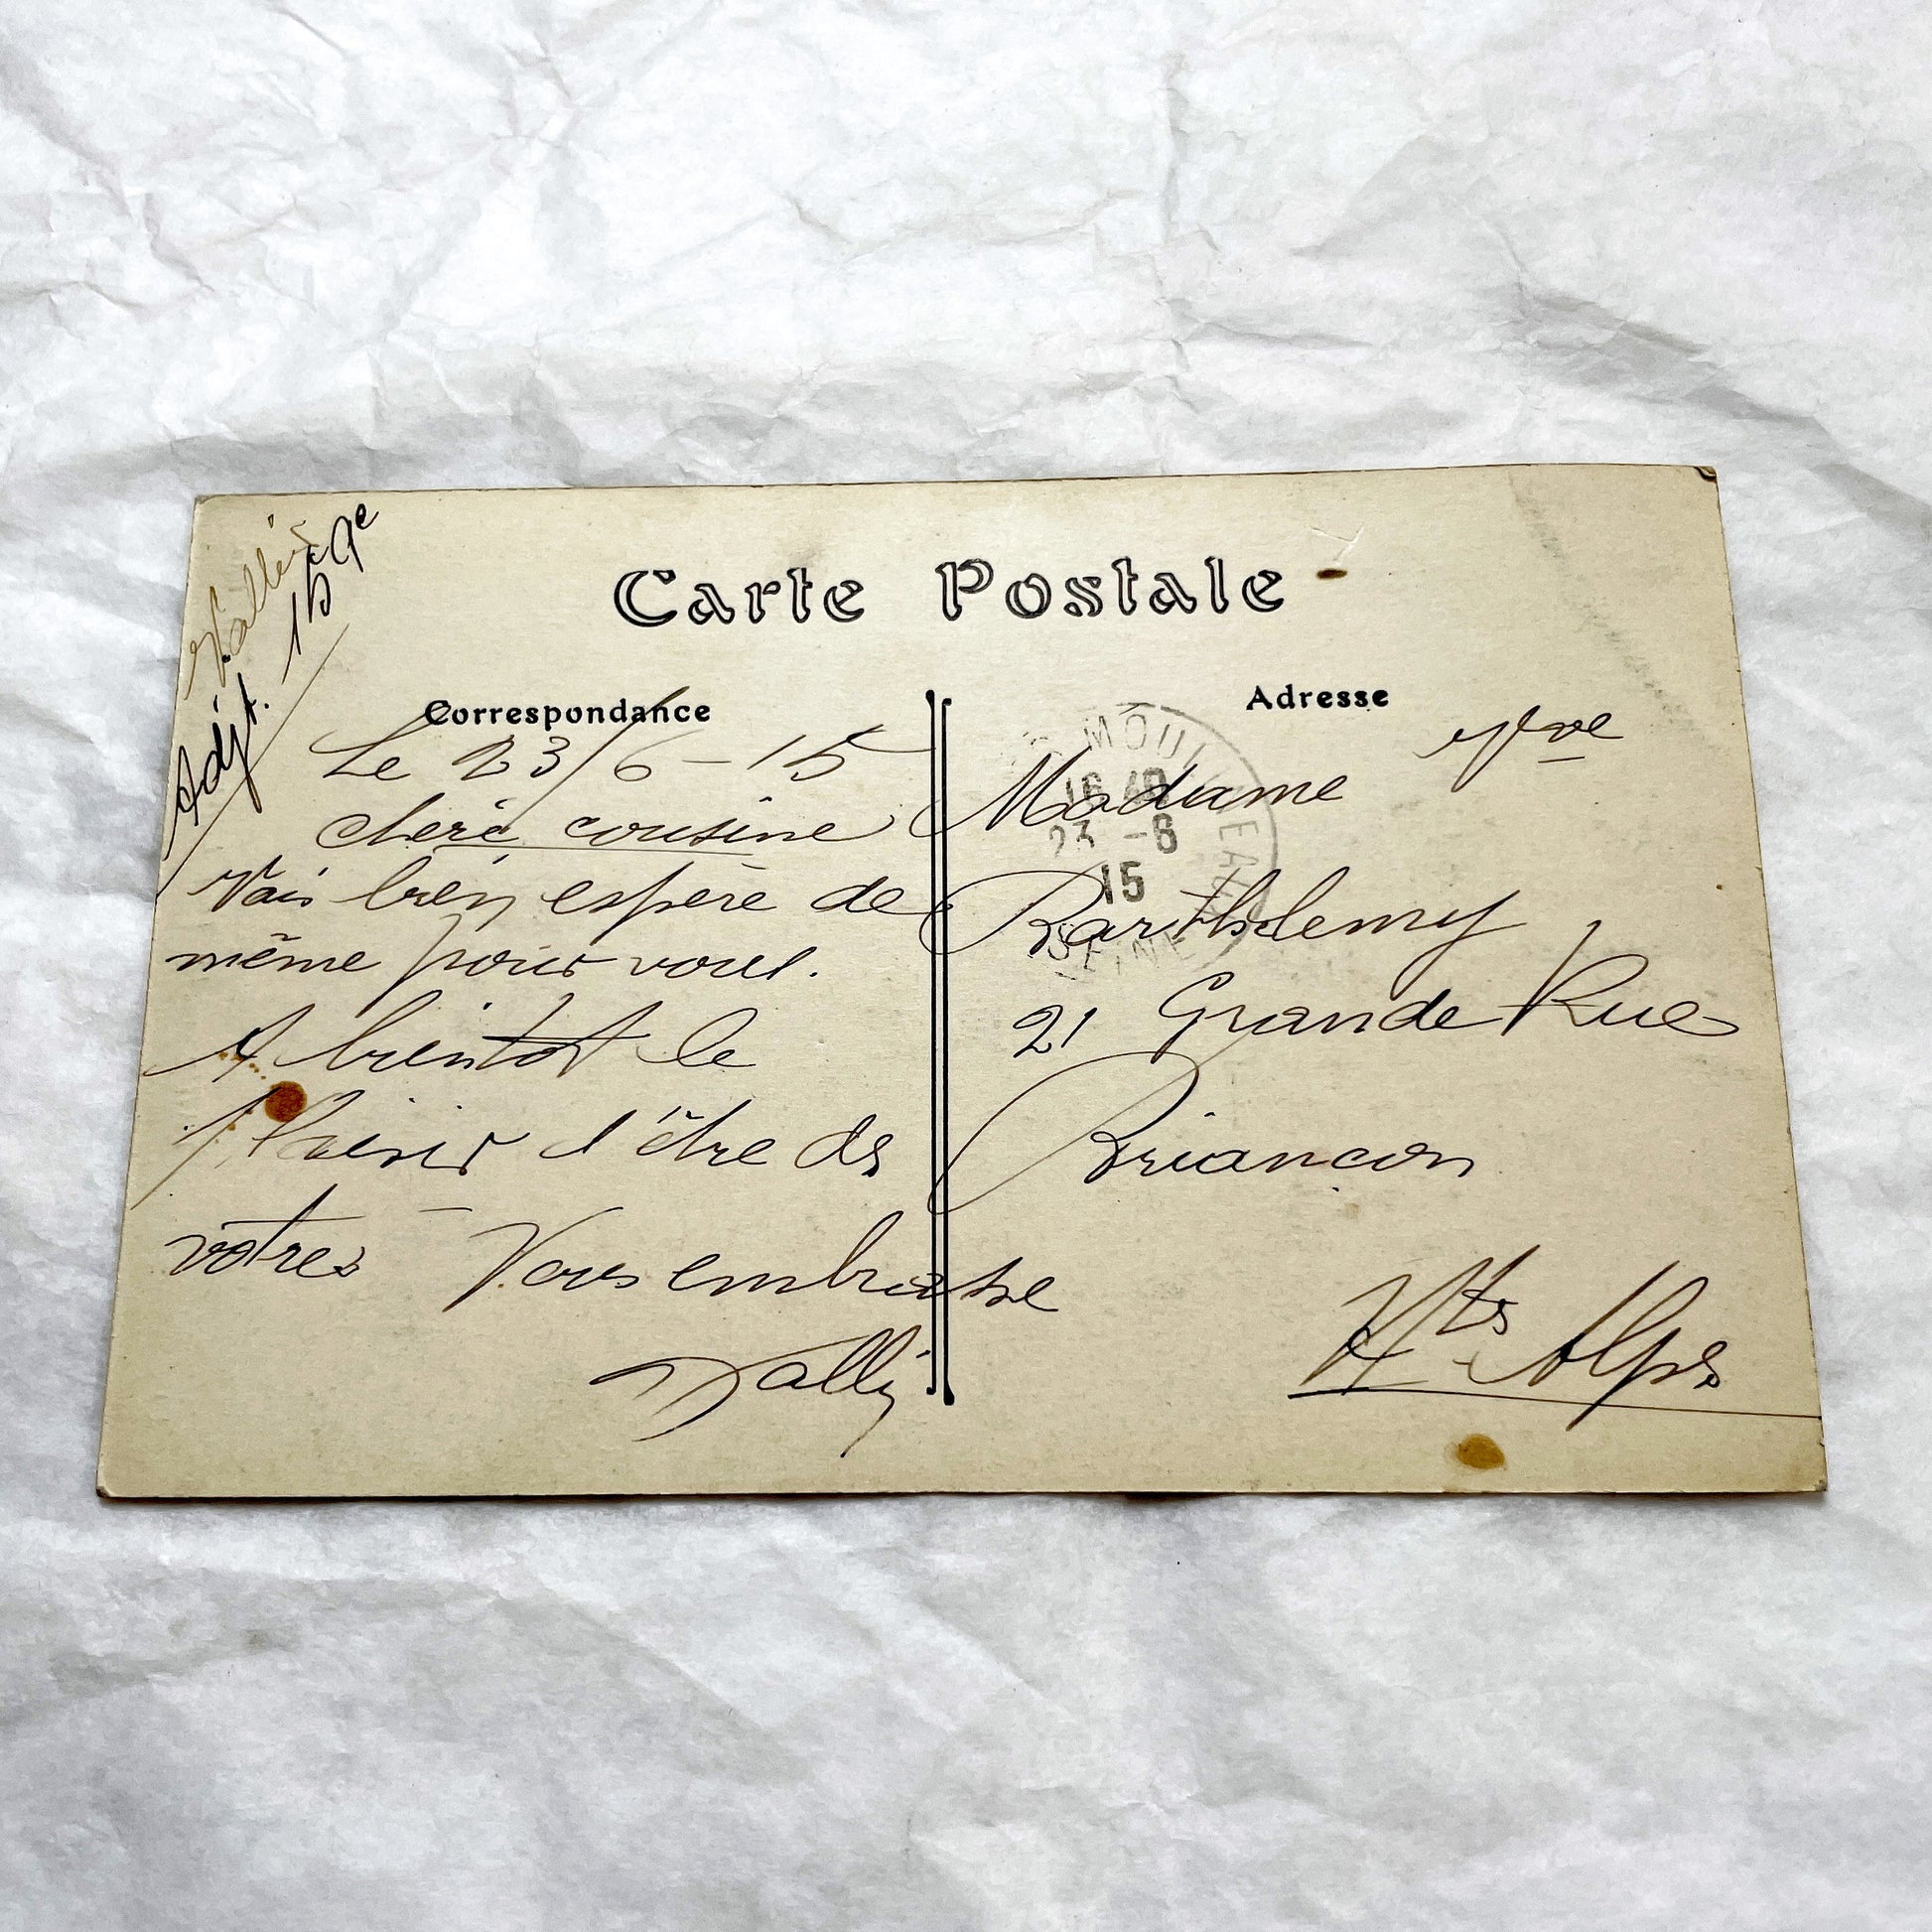 Adjt. 159e
Carte Postale
Correspondance
Adresse
Le 23/6-15
chère cousine
Vais bien, espère de
même pour vous.
A bientôt le
plaisir d'être ds
vôtres - Vous embrasse
Vally
MOUL EAUX
16 40
23 -6
15
SEINE
Madame Vve
Barthelemy
21 Grande Rue
Briancon
Htes Alpes